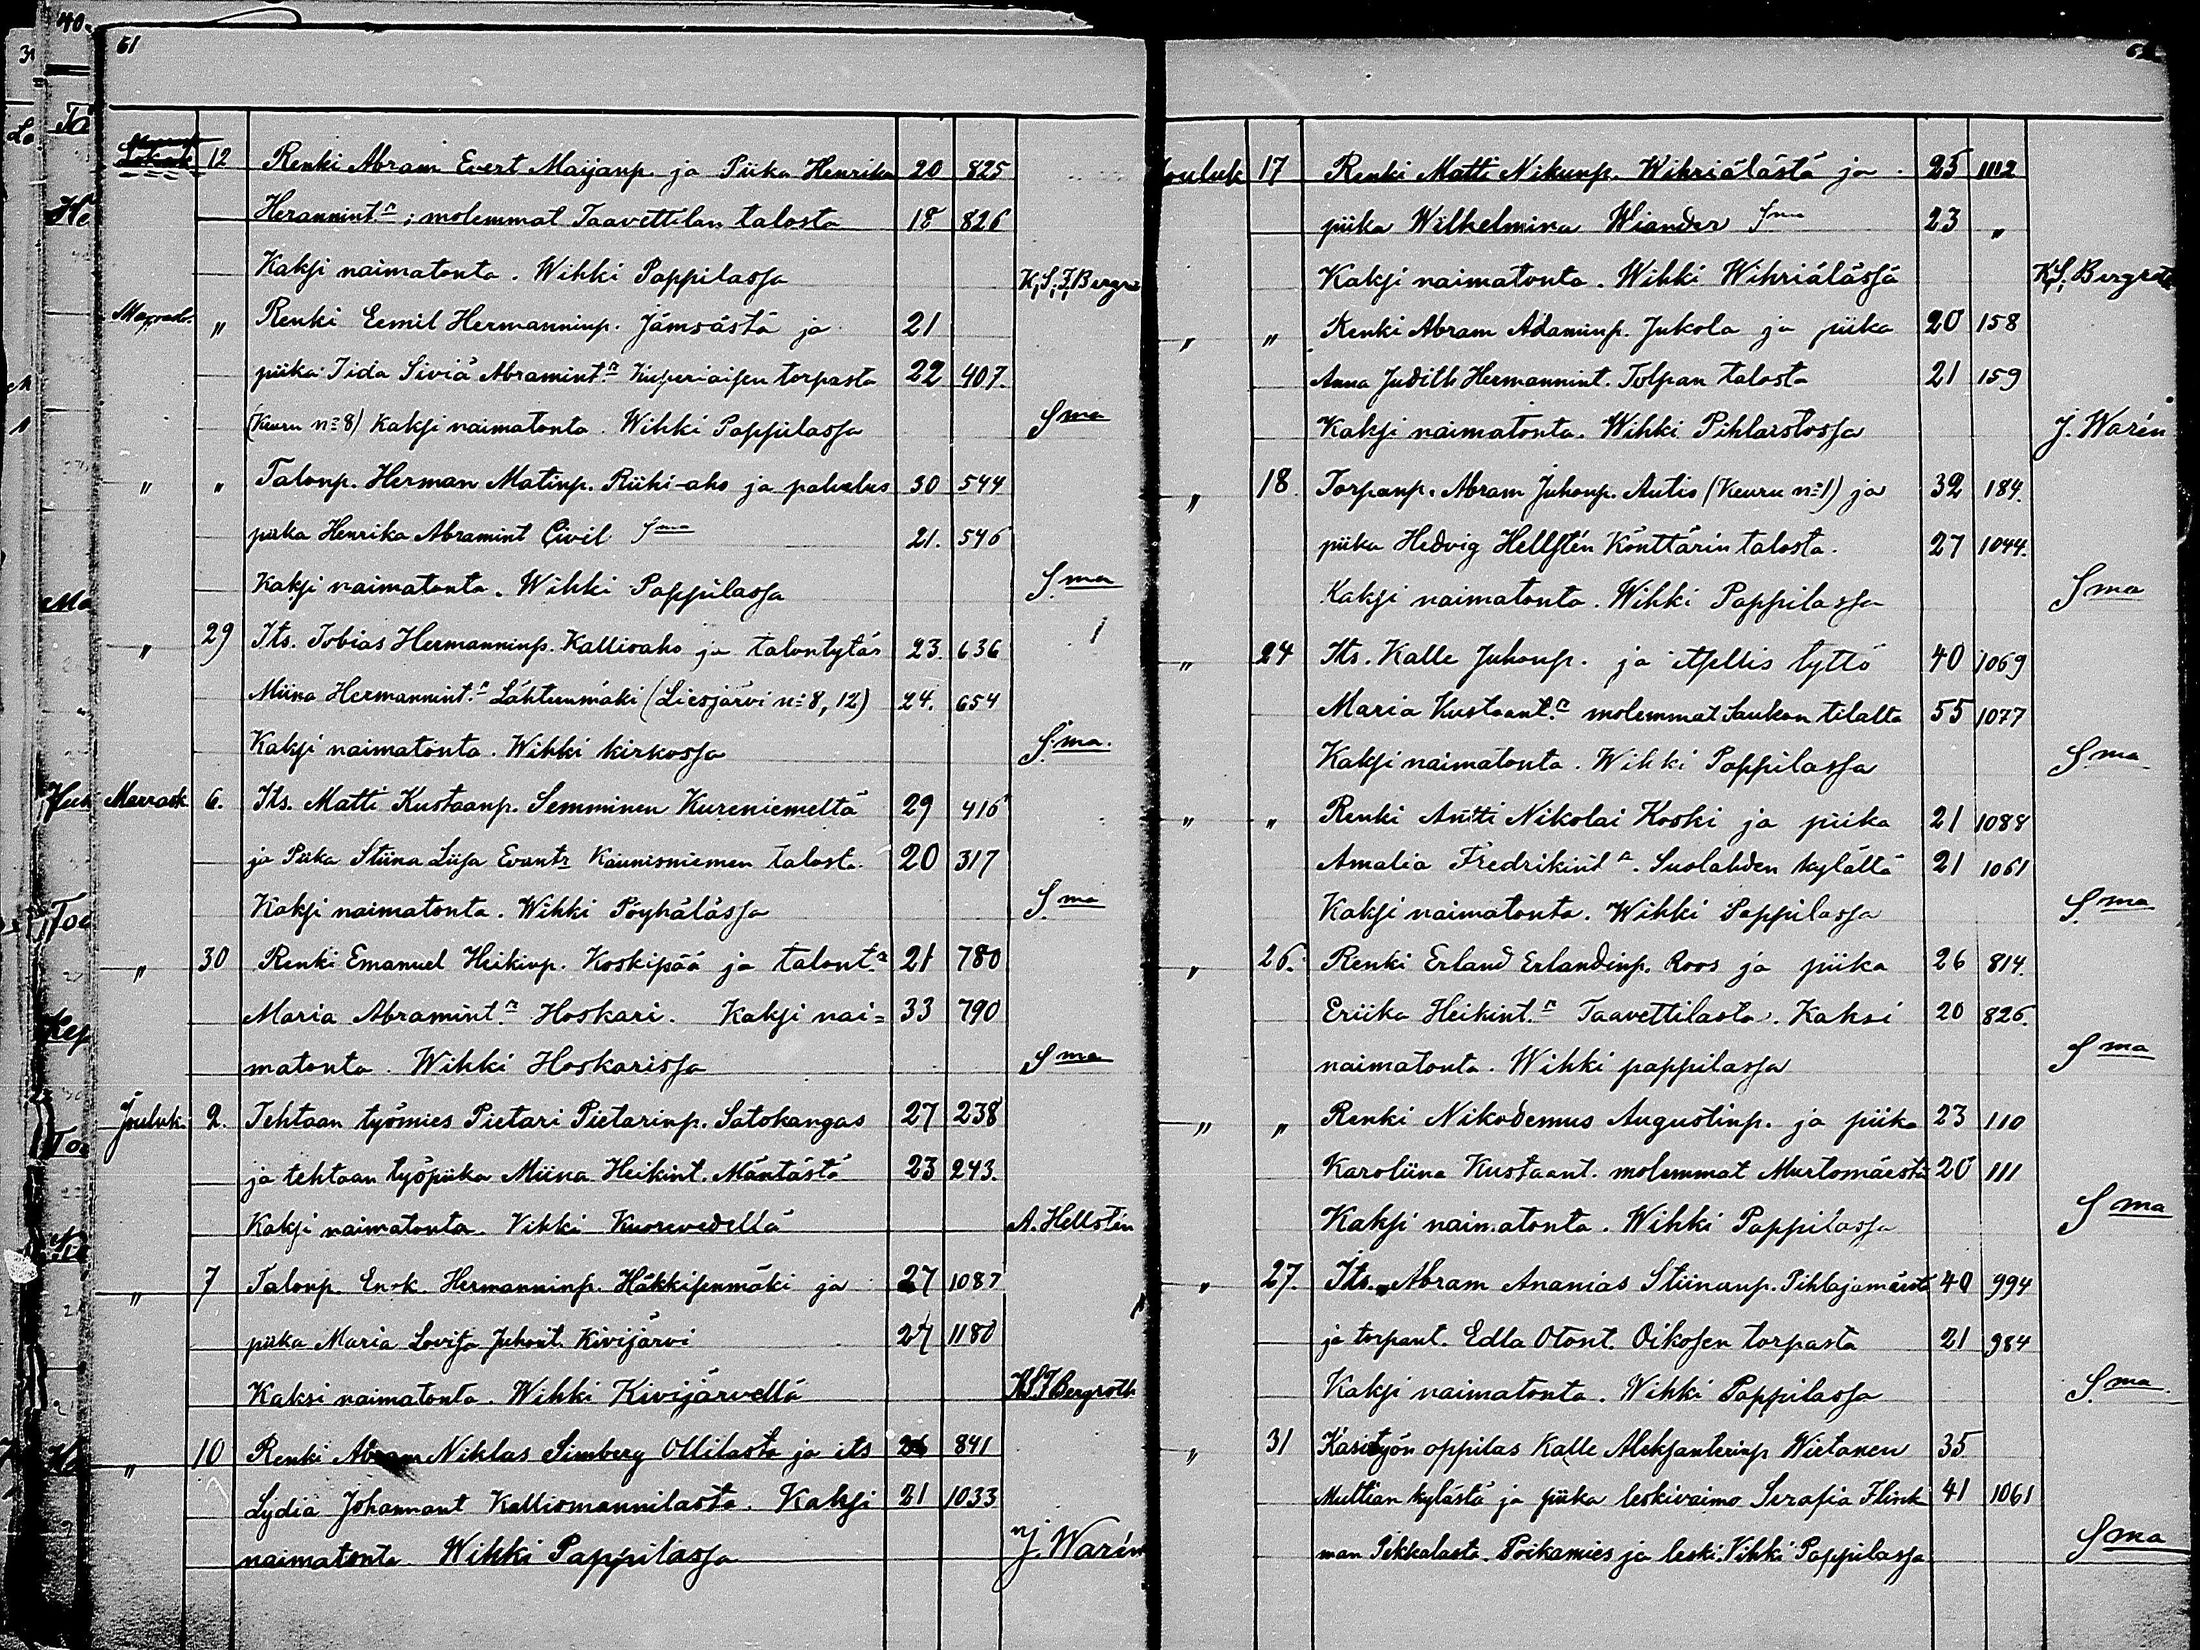 61
Lokak. 12 Renki Abram Evert Maijanp. ja Piika Henrika 20 825
Herannint:n; molemmat Taavettilan talosta 18 826
Kaksi naimatonta. Wihki Pappilassa K. S. F. Bergro
Marrask. " Renki Eemil Hermanninp. Jämsästä ja 21
piika Iida Siviä Abramint:n torpasta 22 407.
(Keuru n:o 8) Kaksi naimatonta. Wihki Pappilassa S:ma
" " Talonp. Herman Matinp. Riiki-aho ja palvelus 30 544
piika Henrika Abramint Civil S:ma 21. 546
Kaksi naimatonta. Wihki Pappilassa S:ma
" 29 Its. Tobias Hermanninp. Kallioaho ja talontytär 23. 636
Miina Hermannint:n Lähteenmäki (Liesjärvi n:o 8, 12) 24. 654
Kaksi naimatonta. Wihki kirkossa S:ma.
Marrask. 6. Its. Matti Kustaanp. Semminen Kureniemeltä 29 416
ja Piika Stiina Liisa Evantr Kaunisniemen talosta. 20 317
Kaksi naimatonta. Wihki Pöyhälässä S:ma
" 30 Renki Emanuel Heikinp. Koskipää ja talont:n 21 780
Maria Abramint:n Hoskari. Kaksi nai= 33 790
matonta. Wihki Hoskarissa S:ma
Jouluk. 2. Tehtaan työmies Pietari Pietarinp. Satokangas 27 238
ja tehtaan työpiika Miina Heikint. Mäntästä 23 243.
Kaksi naimatonta. Vihki Kuorevedellä A. Hellstén
" 7 Talonp. Enok. Hermanninp. Häkkisenmäki ja 27 1087
piika Maria Lovisa Juhont. Kivijärvi 27 1180
Kaksi naimatonta. Wihki Kivijärvellä K.S.F. Bergroth
" 10 Renki Abram Niklas Simberg Ollilasta ja its 841
Lydia Johannant Kalliomannilasta. Kaksi 21 1033
naimatonta. Wihki Pappilassa J. Warén
62
Jouluk 17 Renki Matti Nikunp. Wihriälästä ja 25 1112
piika Wilhelmina Wiander S:ma 23 "
Kaksi naimatonta. Wihki Wihriälässä K.S. Bergroth
" " Renki Abram Adaminp. Jukola ja piika 20 158
Anna Judith Hermannint. Tolpan talosta 21 159
Kaksi naimatonta. Wihki Pihlaistossa J. Warén
" 18 Torpanp. Abram Juhonp. Autio (Keuru n:o 1) ja 32 184.
piika Hedvig Hellstén Könttärin talosta. 27 1044.
Kaksi naimatonta. Wihki Pappilassa S:ma
" 24 Its. Kalle Juhonp. ja itsellis tyttö 40 1069
Maria Kustaant:n molemmat Saukon tilalta 55 1077
Kaksi naimatonta. Wihki Pappilassa S:ma
" " Renki Antti Nikolai Koski ja piika 21 1088
Amalia Fredrikint:n. Suolahden kylältä 21 1061
Kaksi naimatonta. Wihki Pappilassa S:ma
" 26. Renki Erland Erlandinp. Roos ja piika 26 814.
Eriika Heikint:n Taavettilasta. Kaksi 20 826.
naimatonta. Wihki pappilassa S:ma
" " Renki Nikodemus Augustinp. ja piika 23 110
Karoliina Kustaant. molemmat Murtomäestä 20 111
Kaksi naimatonta. Wihki Pappilassa S:ma
" 27. Its. Abram Ananias Stiinanp. Pihlajamäestä 40 994
ja torpant. Edla Otont. Oikosen torpasta 21 984
Kaksi naimatonta. Wihki Pappilassa S:ma.
" 31 Käsityön oppilas Kalle Aleksanterinp Wietanen 35
Multian kylästä ja piika leskivaimo Serafia Flink 41 1061
man Pekkalasta. Poikamies ja leski. Vihki Pappilassa S:ma